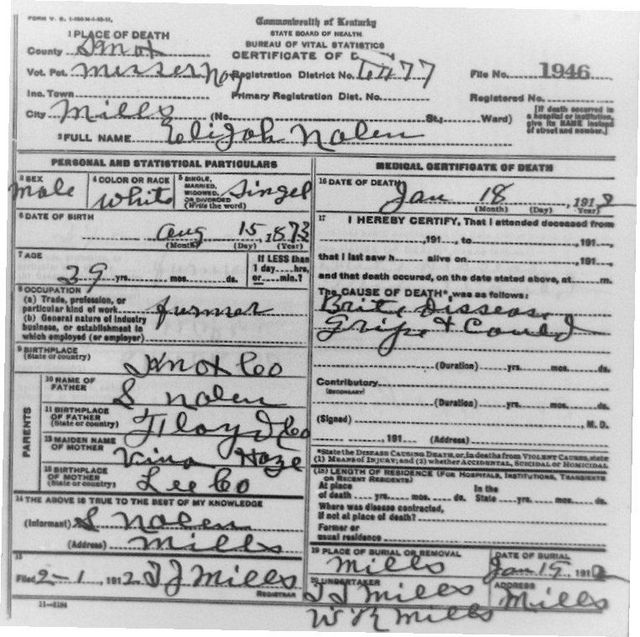 FORM V. S. 1-
Commonwealth of Kentucky
STATE BOARD OF HEALTH
BUREAU OF VITAL STATISTICS
CERTIFICATE OF D
1 PLACE OF DEATH
County Knox
Vot. Pct. Messer No. Registration District No. 6477 File No. 1946
Inc. Town Primary Registration Dist. No. Registered No.
City Mills (No. St.; Ward) [If death occurred in a hospital or institution, give its NAME instead of street and number.]
2 FULL NAME Elijah Nolen
PERSONAL AND STATISTICAL PARTICULARS
3 SEX Male
4 COLOR OR RACE White
5 SINGLE, MARRIED, WIDOWED, OR DIVORCED (Write the word) Singel
6 DATE OF BIRTH
Aug 15, 1873
(Month) (Day) (Year)
7 AGE
39 yrs. mos. ds.
If LESS than 1 day....hrs. or....min.?
8 OCCUPATION
(a) Trade, profession, or particular kind of work Furmer
(b) General nature of industry business, or establishment in which employed (or employer)
9 BIRTHPLACE (State or country) Knox Co
PARENTS
10 NAME OF FATHER S Nolen
11 BIRTHPLACE OF FATHER (State or country) Floyd Co
12 MAIDEN NAME OF MOTHER Vina Haze
13 BIRTHPLACE OF MOTHER (State or country) Lee Co
14 THE ABOVE IS TRUE TO THE BEST OF MY KNOWLEDGE
(Informant) S Nolen
(Address) Mills
15
Filed 2-1, 1912 J J Mills
REGISTRAR
MEDICAL CERTIFICATE OF DEATH
16 DATE OF DEATH Jan 18, 1912
(Month) (Day) (Year)
17 I HEREBY CERTIFY, That I attended deceased from
, 191 , to , 191 ,
that I last saw h alive on , 191 ,
and that death occured, on the date stated above, at m.
The CAUSE OF DEATH* was as follows:
Brite Dissease
Gripe & Could
(Duration) yrs. mos. ds.
Contributory (SECONDARY)
(Duration) yrs. mos. ds.
(Signed) M. D.
, 191 (Address)
*State the DISEASE CAUSING DEATH, or, in deaths from VIOLENT CAUSES, state (1) MEANS OF INJURY; and (2) whether ACCIDENTAL, SUICIDAL or HOMICIDAL
(18) LENGTH OF RESIDENCE (FOR HOSPITALS, INSTITUTIONS, TRANSIENTS OR RECENT RESIDENTS)
At place of death yrs. mos. ds. In the State yrs. mos. ds.
Where was disease contracted, if not at place of death?
Former or usual residence
19 PLACE OF BURIAL OR REMOVAL Mills
DATE OF BURIAL Jan 19, 1912
20 UNDERTAKER J J Mills
W R Mills
ADDRESS Mills